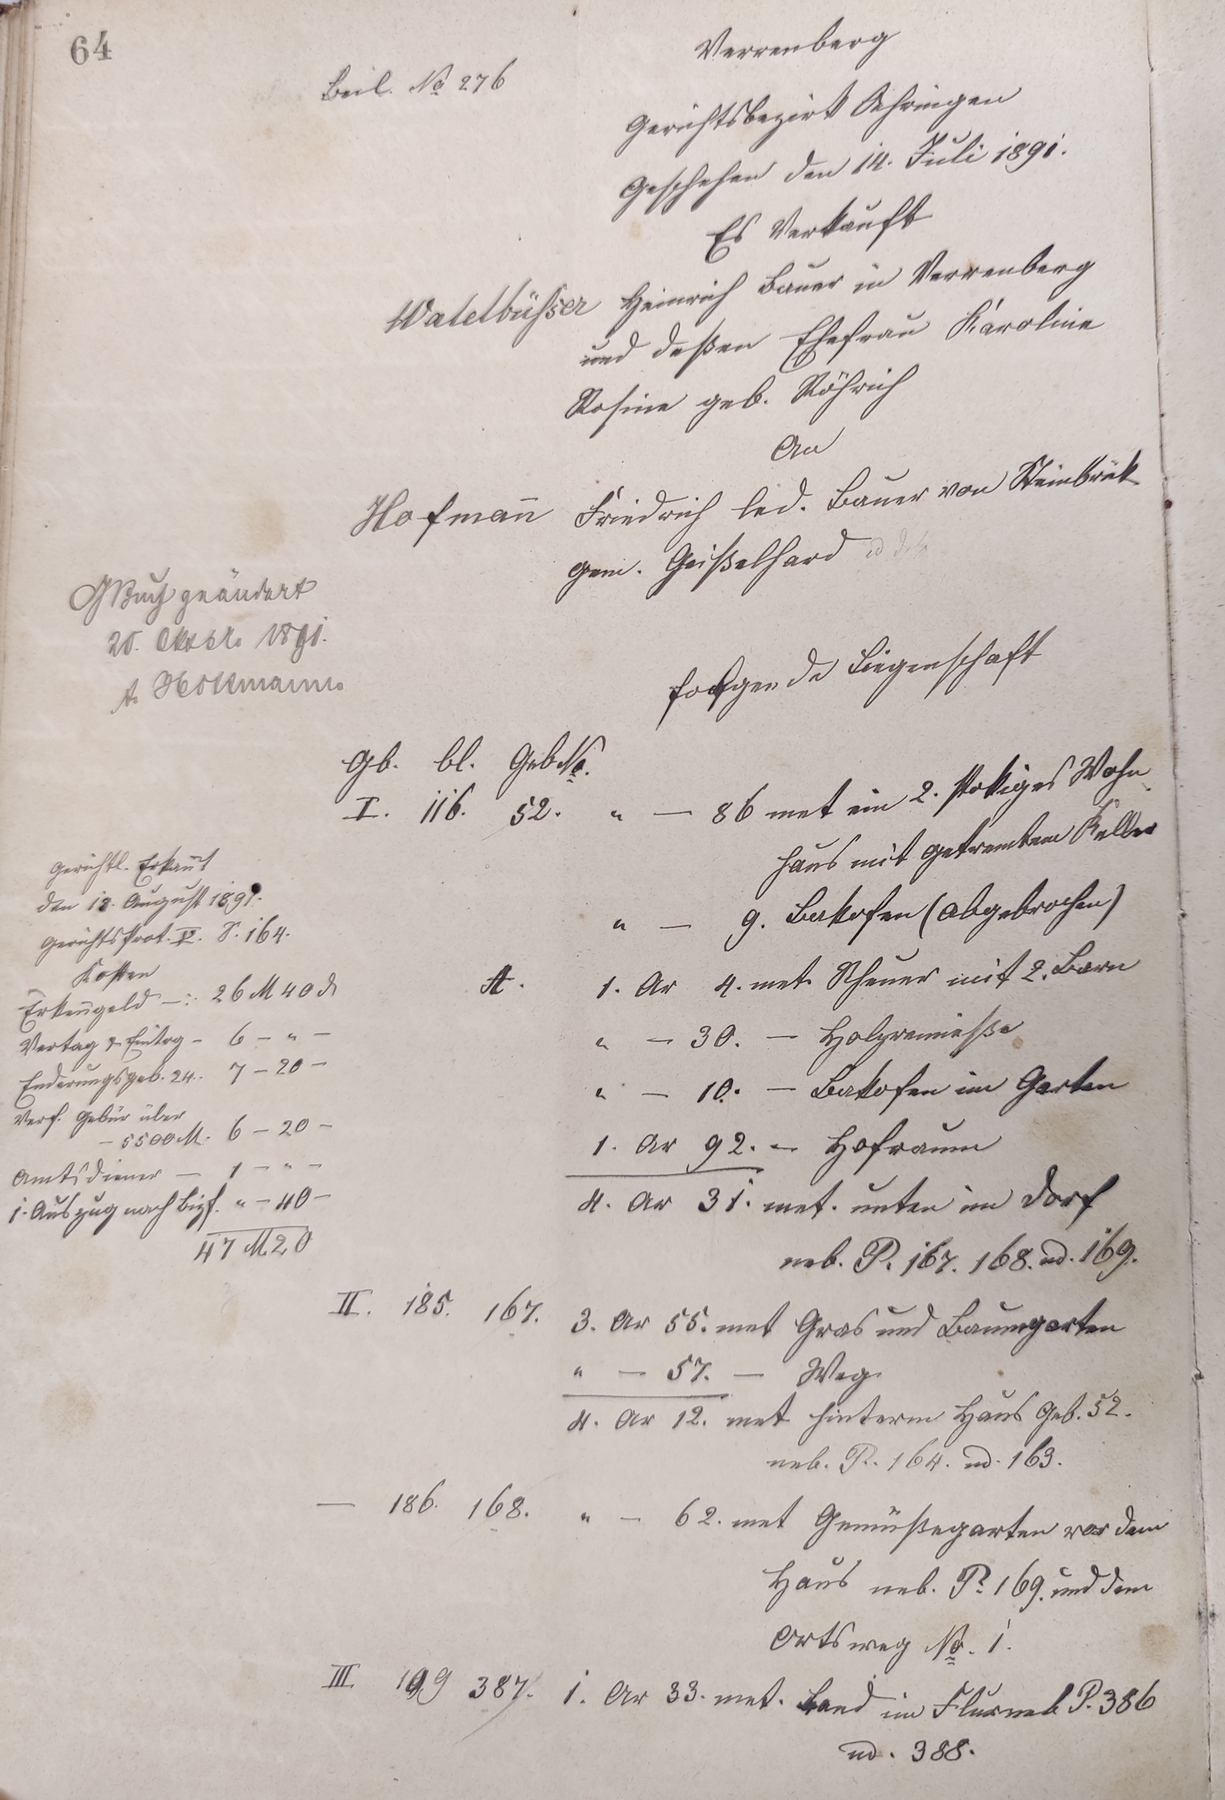 64
Beil. No 276
Verrenberg
Gerichtsbezirk Öhringen
Geschehen den 14. Juli 1891.
Es Verkauft
Watelbühser Heinrich Bauer in Verrenberg
und deßen Ehefrau Karoline
Rosine geb. Röhrich
An
Hofmann Friedrich led. Bauer von Steinbrük
gem. Geißelhard
GBuch geändert
25. Oktbr. 1891.
folgende Liegenschaft
Gb. bl. Geb No.
I. 116. 52. " — 86 met ein 2. stokiges Wohn
haus mit getremtem Keller
" — 9. Bakofen (abgebrochen)
A. 1. Ar 4. met. Scheuer mit 2. Barn
" — 30. — Holzremieße
" — 10. — Bakofen im Garten
1. Ar 92. — Hofraum
4. Ar 31. met. unten im Dorf
neb. P. 167. 168. ud. 169.
Gerichtl. Erkant
den 12. August 1891.
Gerichtsprot. V. S. 164.
Kosten
Erkengeld —: 26 M 40 d
Vertag & Eintrg - 6 - " -
Enderungsgeb. 24. 7 - 20 -
Verf. Gebür über
- 5500 M. 6 - 20 -
Amtsdiener — 1 - " -
1. Auszug nach Bizf. " - 40 -
47 M 20
II. 185. 167. 3. Ar 55. met Gras und Baumgarten
" — 57. — Weg
4. Ar 12. met hinterm Haus Geb. 52.
neb. P. 164. ud. 163.
— 186. 168. " — 62. met Gemüßegarten vor dem
Haus neb. P. 169. und dem
Ortsweg No. 1.
III 199 387. 1. Ar 33. met. Land im Flur neb P. 386
ud. 388.